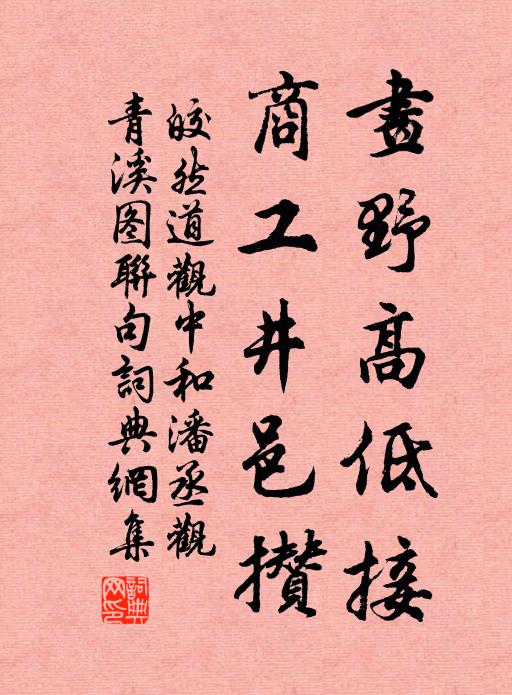 畫野高低接
商工井邑攢
皎然道觀中和潘丞觀
青溪图聯句詞典網集
詞典网印